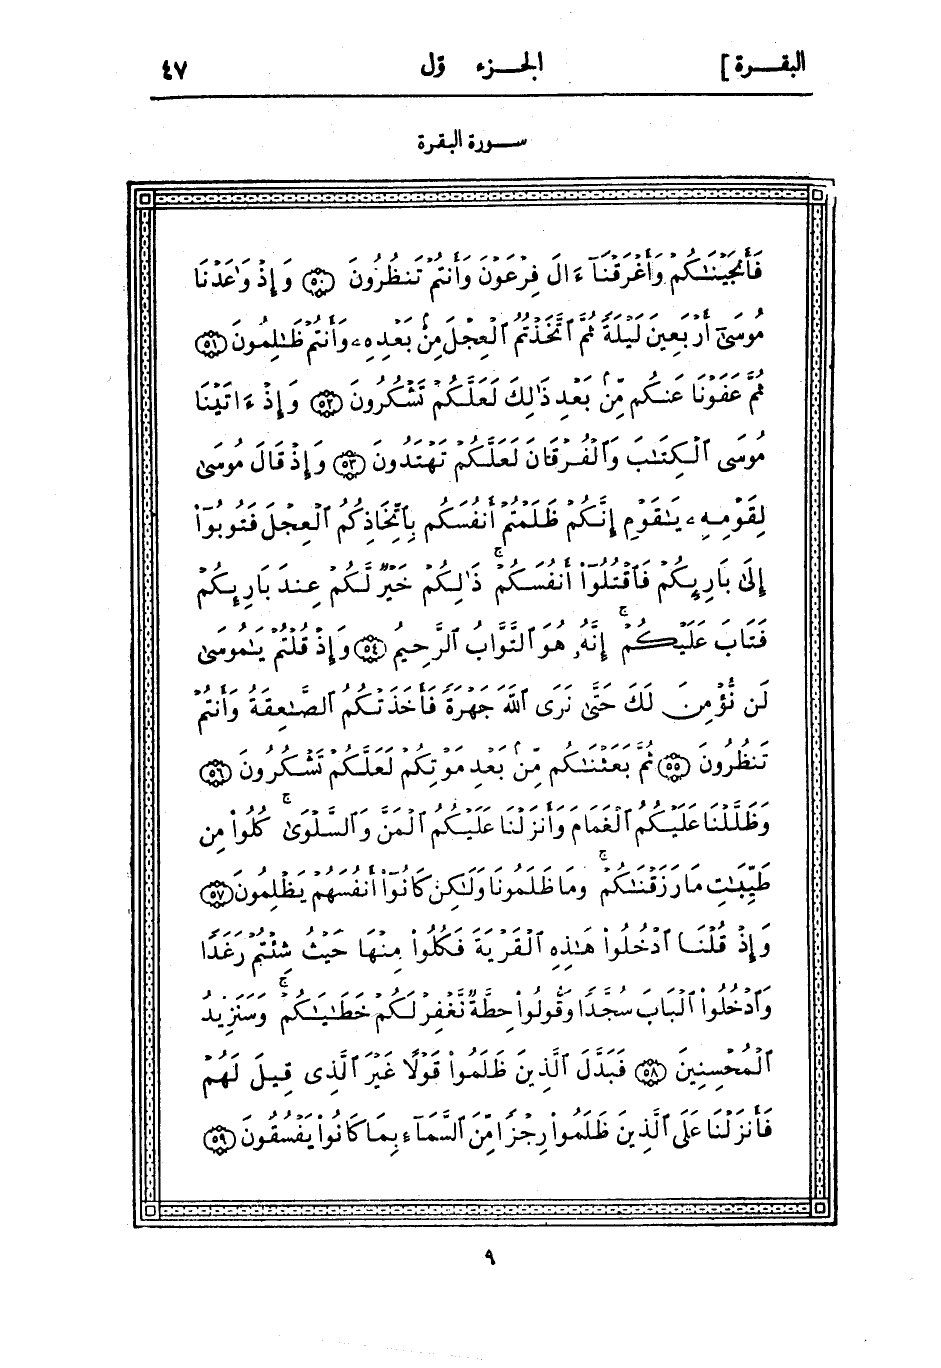 البقـــرة ]
الجـــزء وّل
٤٧
ســورة البقرة
فَأَنجَيْنَـٰكُمْ وَأَغْرَقْنَآ ءَالَ فِرْعَوْنَ وَأَنتُمْ تَنظُرُونَ ٥٠ وَإِذْ وَٰعَدْنَا
مُوسَىٰٓ أَرْبَعِينَ لَيْلَةً ثُمَّ ٱتَّخَذْتُمُ ٱلْعِجْلَ مِنۢ بَعْدِهِۦ وَأَنتُمْ ظَـٰلِمُونَ ٥١
ثُمَّ عَفَوْنَا عَنكُم مِّنۢ بَعْدِ ذَٰلِكَ لَعَلَّكُمْ تَشْكُرُونَ ٥٢ وَإِذْ ءَاتَيْنَا
مُوسَى ٱلْكِتَـٰبَ وَٱلْفُرْقَانَ لَعَلَّكُمْ تَهْتَدُونَ ٥٣ وَإِذْ قَالَ مُوسَىٰ
لِقَوْمِهِۦ يَـٰقَوْمِ إِنَّكُمْ ظَلَمْتُمْ أَنفُسَكُم بِٱتِّخَاذِكُمُ ٱلْعِجْلَ فَتُوبُوٓا۟
إِلَىٰ بَارِئِكُمْ فَٱقْتُلُوٓا۟ أَنفُسَكُمْ ۚ ذَٰلِكُمْ خَيْرٌ لَّكُمْ عِندَ بَارِئِكُمْ
فَتَابَ عَلَيْكُمْ ۚ إِنَّهُۥ هُوَ ٱلتَّوَّابُ ٱلرَّحِيمُ ٥٤ وَإِذْ قُلْتُمْ يَـٰمُوسَىٰ
لَن نُّؤْمِنَ لَكَ حَتَّىٰ نَرَى ٱللَّهَ جَهْرَةً فَأَخَذَتْكُمُ ٱلصَّـٰعِقَةُ وَأَنتُمْ
تَنظُرُونَ ٥٥ ثُمَّ بَعَثْنَـٰكُم مِّنۢ بَعْدِ مَوْتِكُمْ لَعَلَّكُمْ تَشْكُرُونَ ٥٦
وَظَلَّلْنَا عَلَيْكُمُ ٱلْغَمَامَ وَأَنزَلْنَا عَلَيْكُمُ ٱلْمَنَّ وَٱلسَّلْوَىٰ ۖ كُلُوا۟ مِن
طَيِّبَـٰتِ مَا رَزَقْنَـٰكُمْ ۚ وَمَا ظَلَمُونَا وَلَـٰكِن كَانُوٓا۟ أَنفُسَهُمْ يَظْلِمُونَ ٥٧
وَإِذْ قُلْنَا ٱدْخُلُوا۟ هَـٰذِهِ ٱلْقَرْيَةَ فَكُلُوا۟ مِنْهَا حَيْثُ شِئْتُمْ رَغَدًا
وَٱدْخُلُوا۟ ٱلْبَابَ سُجَّدًا وَقُولُوا۟ حِطَّةٌ نَّغْفِرْ لَكُمْ خَطَـٰيَـٰكُمْ ۚ وَسَنَزِيدُ
ٱلْمُحْسِنِينَ ٥٨ فَبَدَّلَ ٱلَّذِينَ ظَلَمُوا۟ قَوْلًا غَيْرَ ٱلَّذِى قِيلَ لَهُمْ
فَأَنزَلْنَا عَلَى ٱلَّذِينَ ظَلَمُوا۟ رِجْزًا مِّنَ ٱلسَّمَآءِ بِمَا كَانُوا۟ يَفْسُقُونَ ٥٩
٩